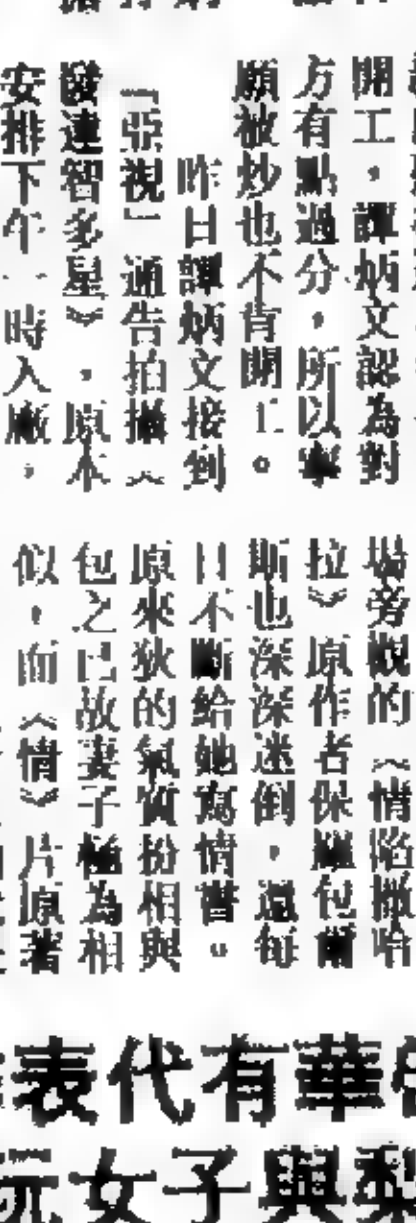 開工，譚炳文認為對
方有點過分，所以寧
願被炒也不肯開工。
昨日譚炳文接到
「亞視」通告拍攝《
發達智多星》，原本
安排下午一時入廠，
場旁觀的《情陷撒哈
拉》原作者保羅包爾
斯也深深迷倒，還每
日不斷給她寫情書。
原來狄的氣質扮相與
包之已故妻子極為相
似，而《情》片原著
華有代表
與子女阮